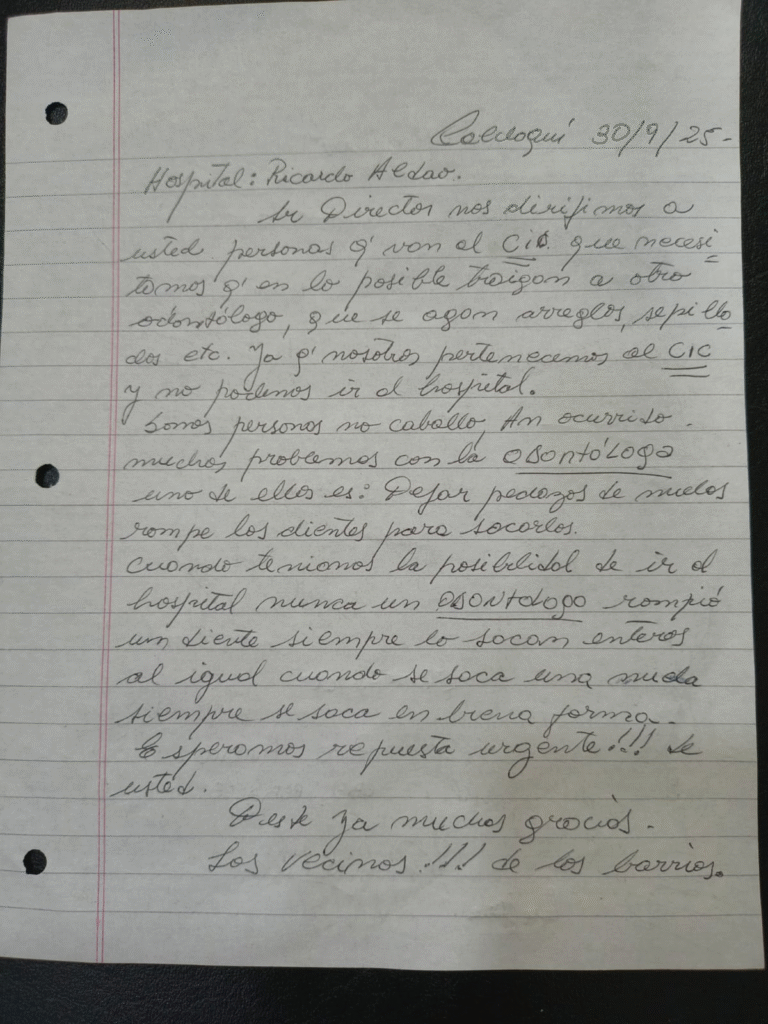 Caldoqui 30/9/25-
Hospital: Ricardo Aldao.
Sr Director nos dirijimos a
usted personas q' van al CiC. que necesi
tamos q' en lo posible traigan a otro
odontólogo, que se agan arreglos, sepilla
dos etc. Ya q' nosotros pertenecemos al CIC
y no podemos ir al hospital.
Somos personas no caballo, An ocurrido.
muchos problemas con la Odontóloga
uno de ellos es: Dejar pedazos de muelas
rompe los dientes para sacarlos.
cuando teniamos la posibilidad de ir al
hospital nunca un Odontologo rompió
un diente siempre lo sacan enteros
al igual cuando se saca una muela
siempre se saca en buena forma.
Esperamos repuesta urgente!!! de
usted.
Desde ya muchas gracias.
Los vecinos!!! de los barrios.